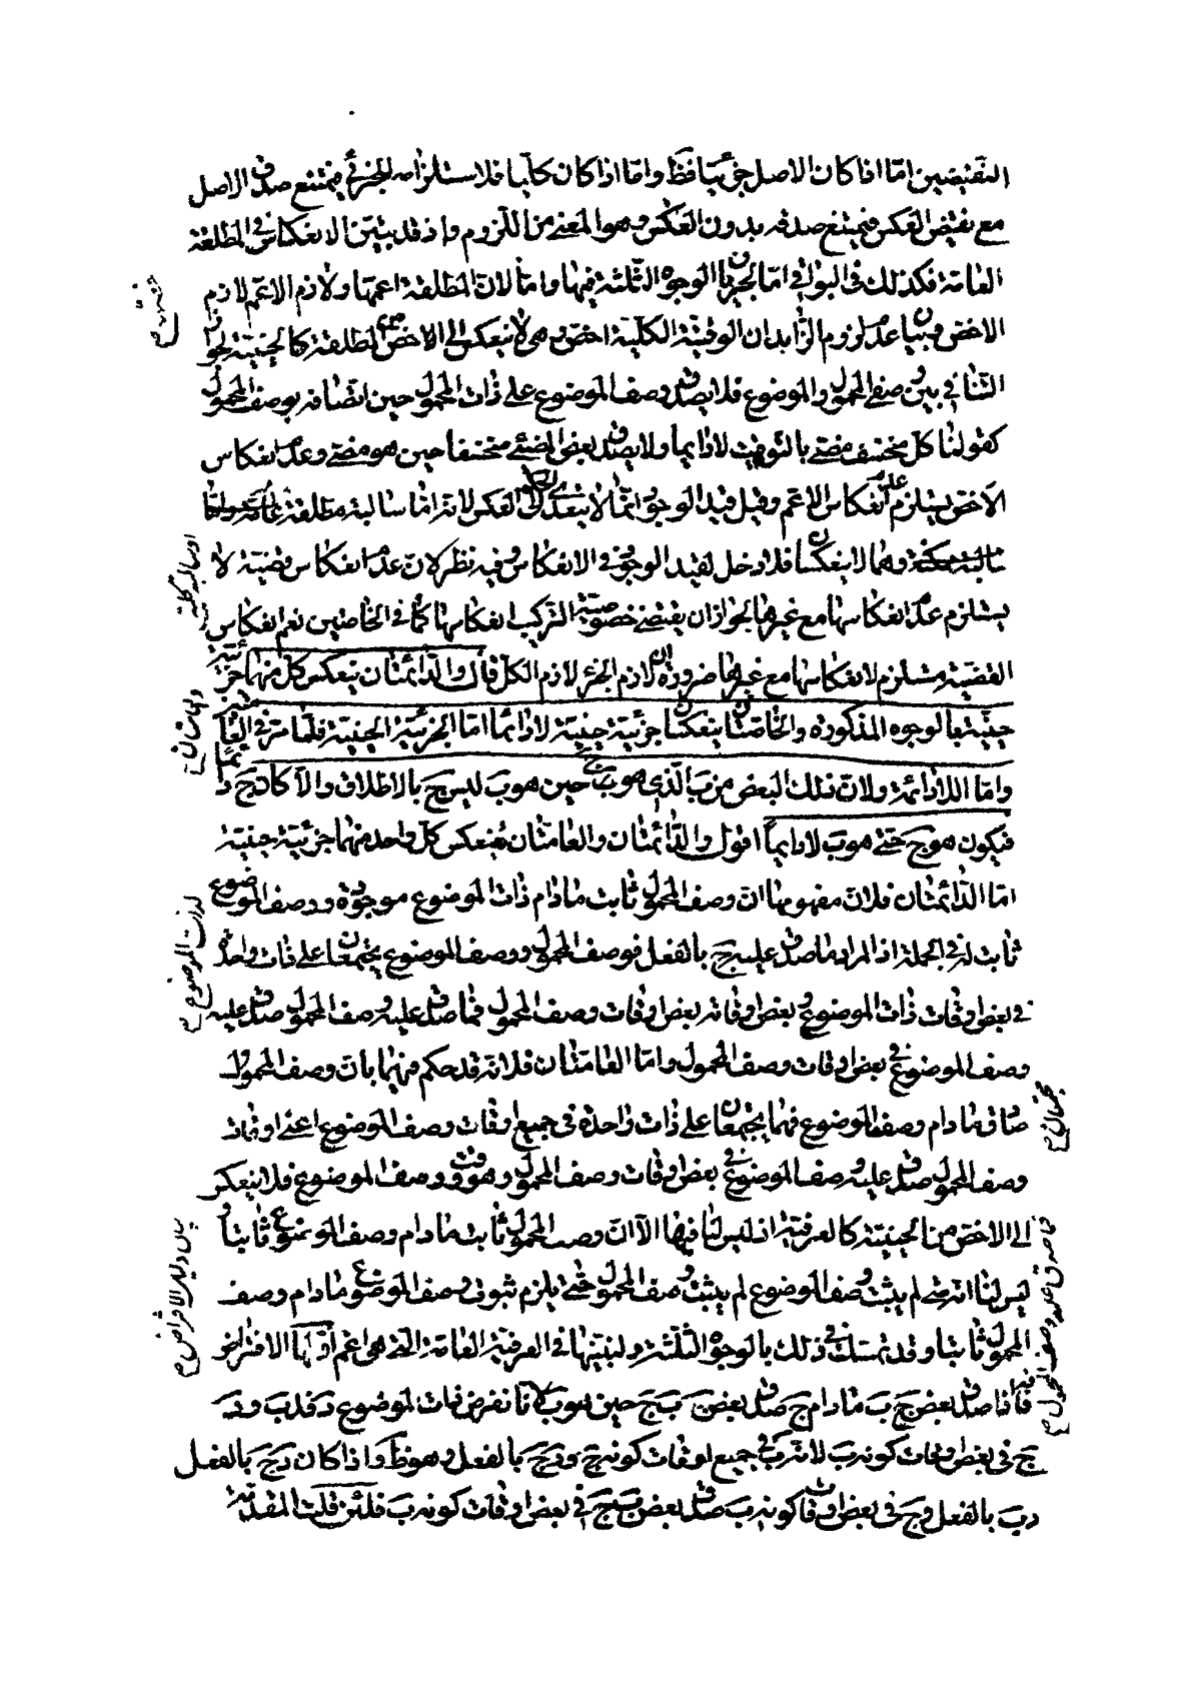 النقيضين امّا اذا كان الاصل جزئيّا فظ وامّا اذا كان كليّا فلاستلزامه الجزئى فيمتنع صدق الاصل
مع نقيض العكس فيمتنع صدقه بدون العكس وهو المعنى من اللزوم واذ قد تبيّن الانعكاس فى المطلقة
العامّة فكذلك فى البواقى امّا بجريان الوجوه الثلثة فيها وامّا لانّ المطلقة اعمّها ولازم الاعمّ لازم
الاخصّ وبيان عدم لزوم الزايد ان الوقتيّة الكليّة اخصّ وهى لا تنعكس الى الاخصّ من المطلقة كالحينيّة لجواز
التنافى بين وصفى المحمول والموضوع فلا يصدق وصف الموضوع على ذات المحمول حين اتّصافه بوصف المحمول
كقولنا كلّ منخسف مضئ بالتوقيت لا دايما ولا يصدق بعض المضئ منخسف حين هو مضئ وعدم انعكاس
الاخصّ يستلزم عدم انعكاس الاعمّ وقيل قيد الوجود انّما لا يتعدّى الى العكس لانّه امّا سالبة مطلقة عامّة
وهما لا ينعكسان فلا دخل لقيد الوجود فى الانعكاس وفيه نظر لانّ عدم انعكاس قضيّة لا
يستلزم عدم انعكاسها مع غيرها لجواز ان يقتضى خصوصيّة التركيب انعكاسها كما فى الخاصّتين نعم انعكاس
القضيّة مستلزم لانعكاسها مع غيرها ضرورة ان لازم الجزء لازم الكلّ قال والدّائمتان ينعكس كلّ منهما جزئيّة
حينيّة بالوجوه المذكورة والخاصّتان ينعكسان جزئيّة حينيّة لا دائما امّا الجزئيّة الحينيّة فلما مرّ فى العامّتين
وامّا اللادائمة ولانّ ذلك البعض من ب الذى هو ج حين هو ب ليس ج بالاطلاق والّا كان ج دائما
فيكون هو ج حتى هو ب لا دايما اقول والدّائمتان والعامّتان ينعكس كلّ واحد منهما جزئيّة حينيّة
امّا الدّائمتان فلانّ مفهومها انّ وصف المحمول ثابت ما دام ذات الموضوع موجودة ووصف الموضوع
ثابت له فى الجملة اذ المراد ما صدق عليه ج بالفعل فوصف المحمول ووصف الموضوع يجتمعان على ذات واحدة
فى بعض اوقات ذات الموضوع وبعض اوقاته بعض اوقات وصف المحمول فما صدق عليه وصف المحمول صدق عليه
وصف الموضوع فى بعض اوقات وصف المحمول وامّا العامّتان فلانّه قد حكم فيهما بانّ وصف المحمول
صادق ما دام وصف الموضوع فهما يجتمعان على ذات واحدة فى جميع اوقات وصف الموضوع اعنى اوقات
وصف المحمول صدق عليه وصف الموضوع فى بعض اوقات وصف المحمول وهو وقت وصف الموضوع فلا ينعكس
الى الاخصّ من الحينيّة كالعرفيّة اذ ليس لنا فيها الّا انّ وصف المحمول ثابت ما دام وصف الموضوع ثابتا و
ليس لنا انّه متى لم يثبت وصف الموضوع لم يثبت وصف المحمول حتى يلزم ثبوت وصف الموضوع ما دام وصف
المحمول ثابتا وقد تمسّك فى ذلك بالوجوه الثلثة ولنبيّنها فى العرفيّة العامّة التى هى اعمّ امّا الافتراض
فاذا صدق بعض ج ب ما دام ج صدق بعض ب ج حين هو ب لانّا نفرض ذات الموضوع د فد ب ود
ج فى بعض اوقات كونه ب لانّه ب فى جميع اوقات كونه ج ود ج بالفعل وهو ظ واذا كان د ج بالفعل
د ب بالفعل وج فى بعض اوقات كونه ب صدق بعض ب ج فى بعض اوقات كونه ب فلئن قلت المقدّمة
لذات الموضوع
بيان دليل الافتراض
ما صدق عليه وصف المحمول